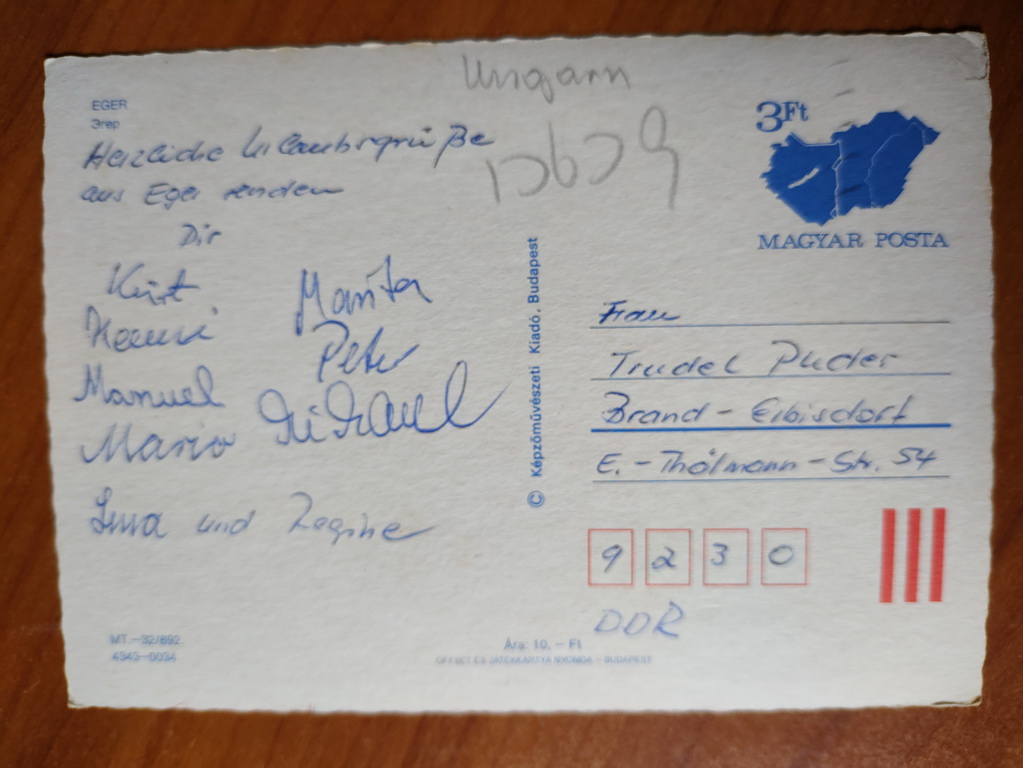 Ungarn
EGER
Эгер
Herzliche Urlaubsgrüße
aus Eger senden
Dir
Kurt
Hanni
Manuel
Mario
Marita
Peter
Michael
und Regine
© Képzőművészeti Kiadó, Budapest
3Ft
MAGYAR POSTA
Frau
Trudel Puder
Brand-Erbisdorf
E.-Thälmann-Str. 54
9 2 3 0
DDR
MT.–32/892.
4343–0034
Ára: 10,– Ft
OFFSET ÉS JÁTÉKKÁRTYA NYOMDA – BUDAPEST